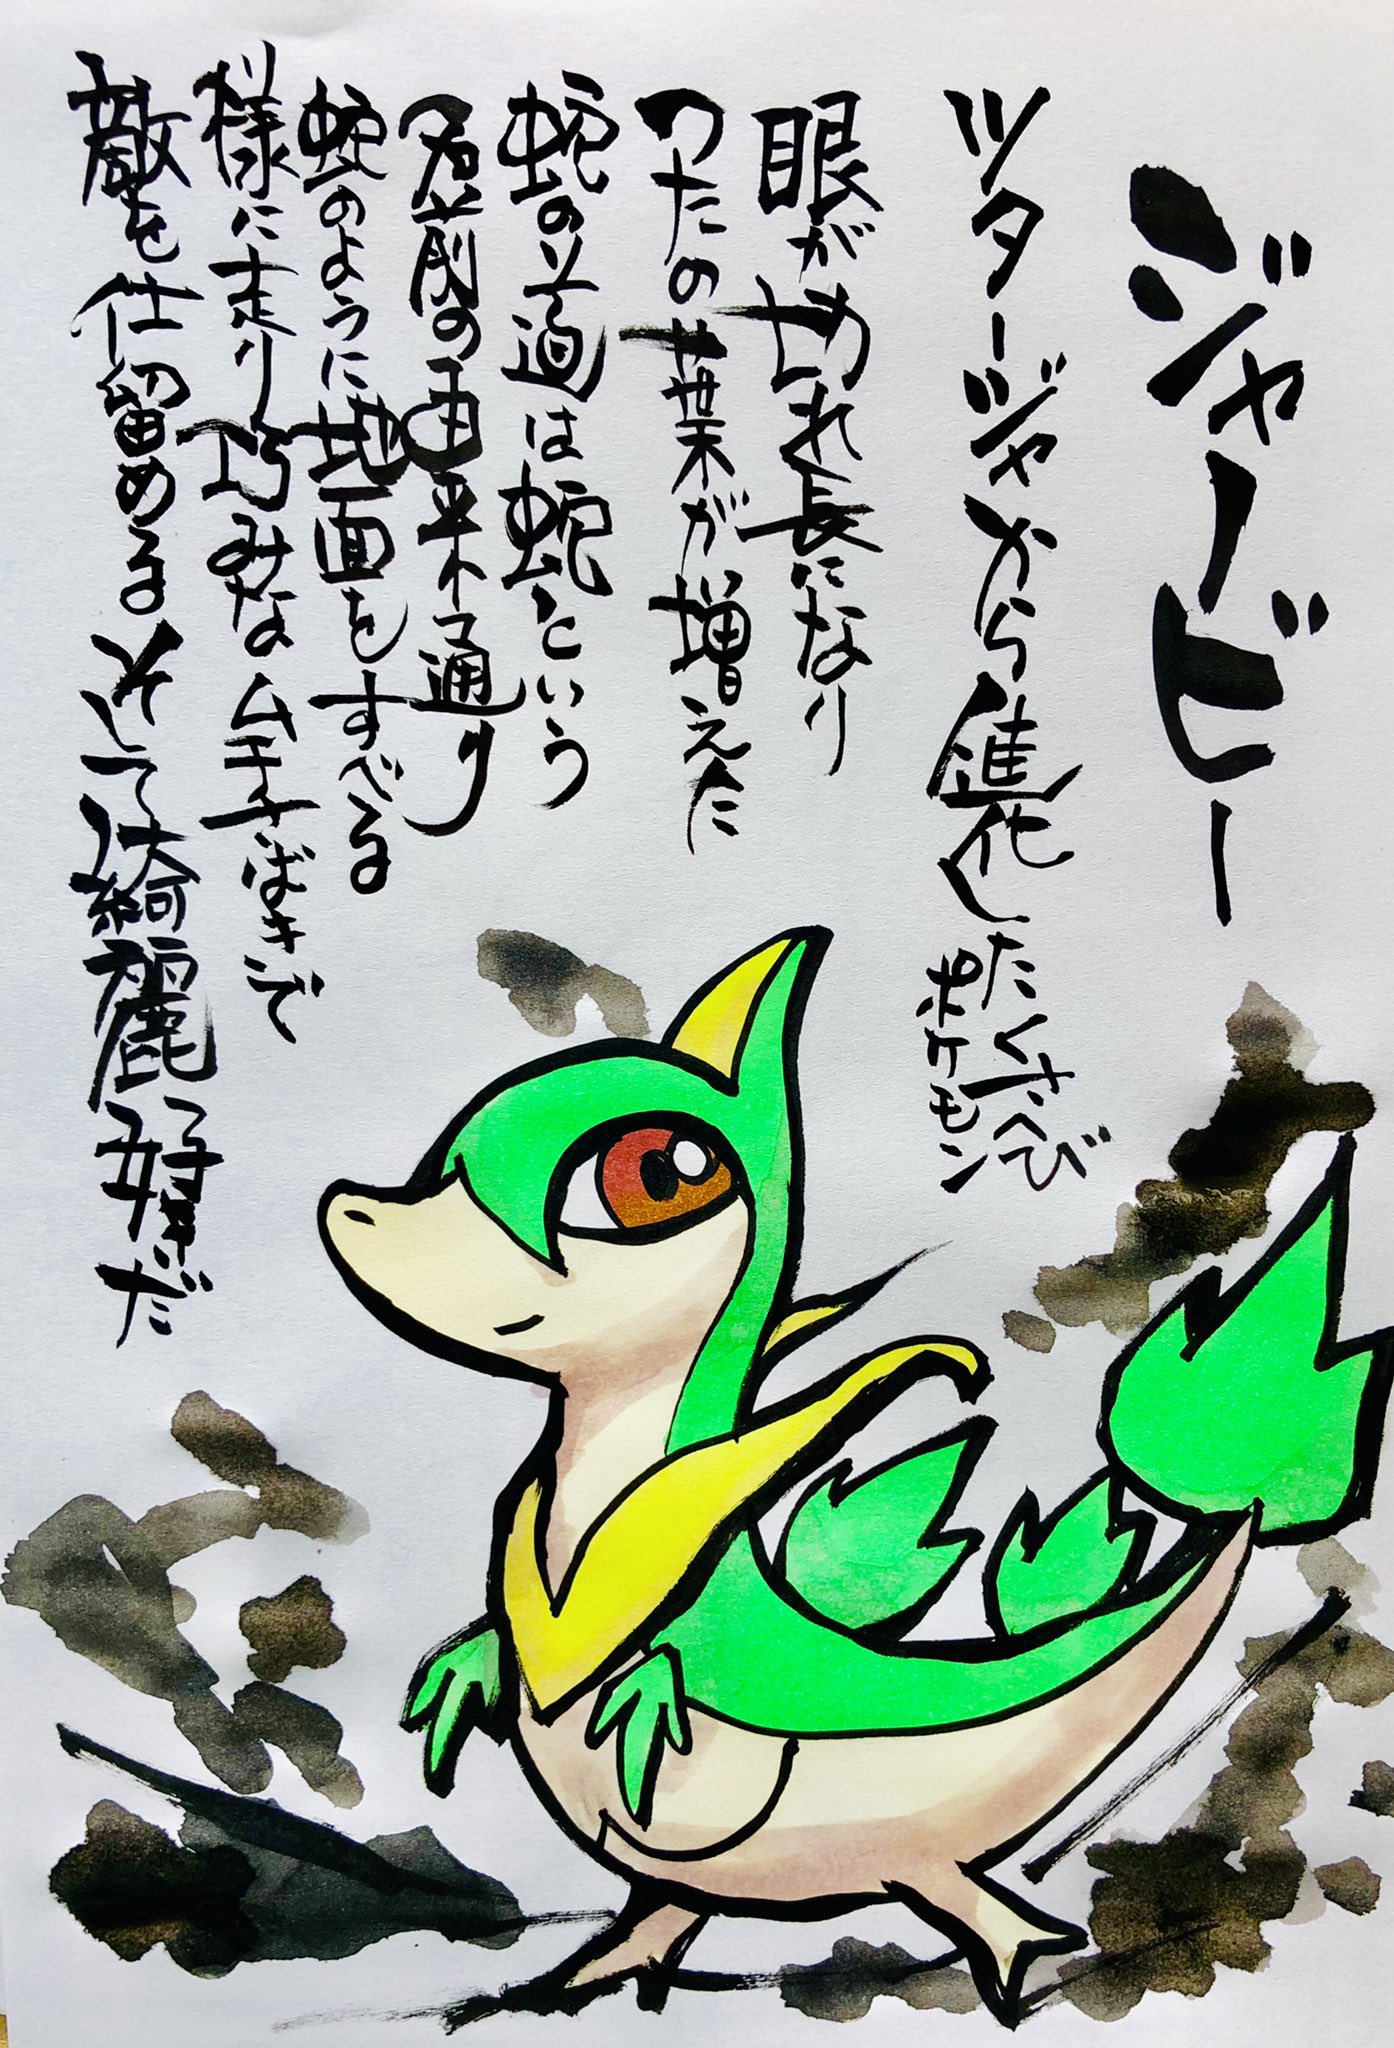 ジャービー
ツタージャから進化したくさへび
ポケモン
眼が切れ長になり
つたの葉が増えた
蛇の道は蛇という
名前の由来通り
蛇のように地面をすべる
様に走り巧みなムチさばきで
敵を仕留めるそして綺麗好きだ